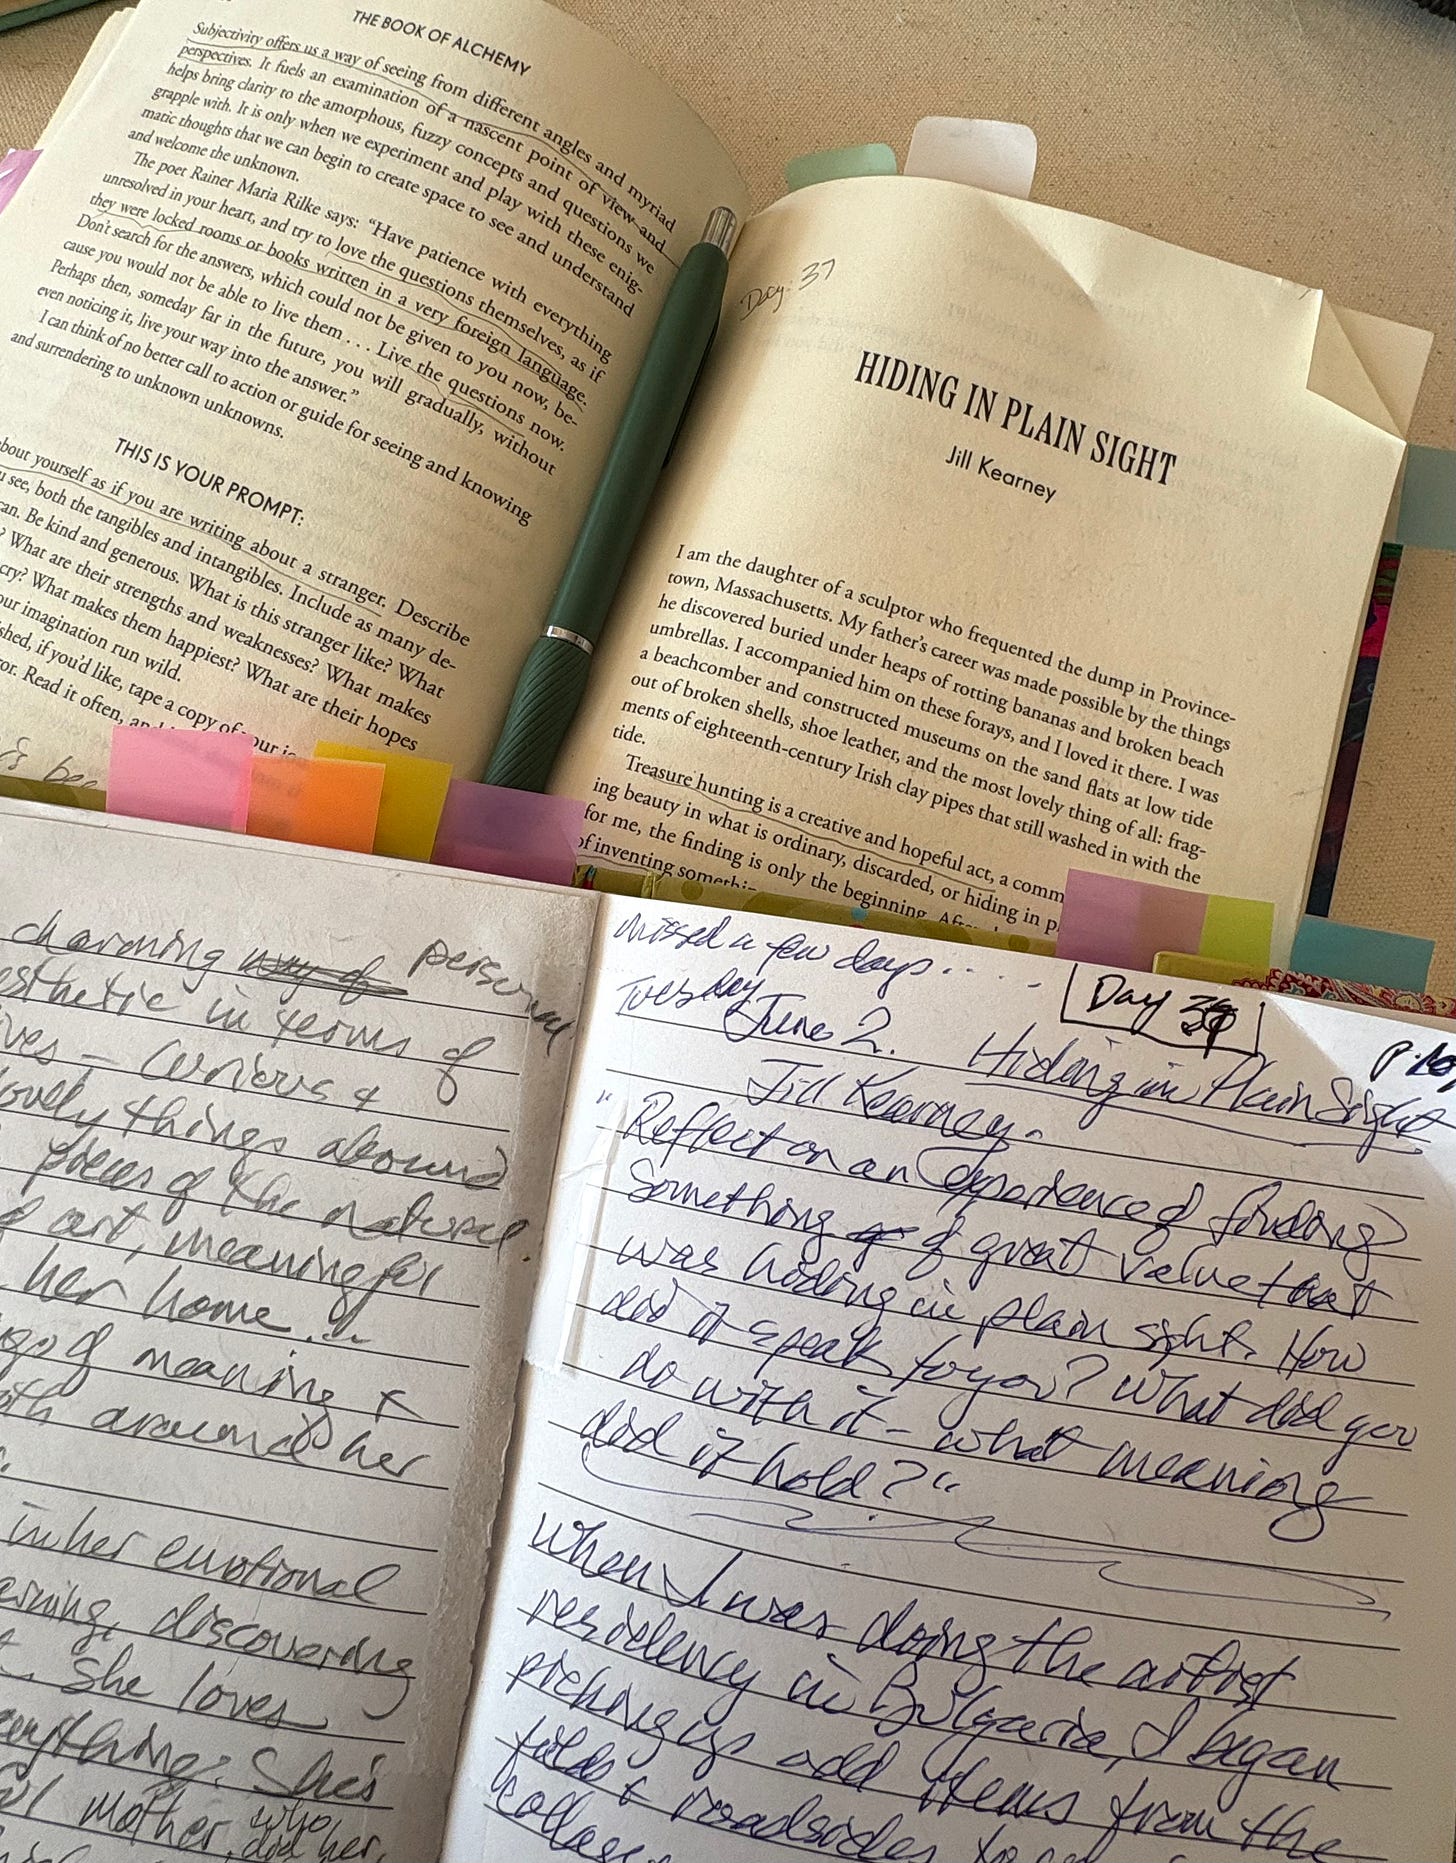 THE BOOK OF ALCHEMY
Subjectivity offers us a way of seeing from different angles and myriad
perspectives. It fuels an examination of a nascent point of view—and
helps bring clarity to the amorphous, fuzzy concepts and questions we
grapple with. It is only when we experiment and play with these enig-
matic thoughts that we can begin to create space to see and understand
and welcome the unknown.
The poet Rainer Maria Rilke says: “Have patience with everything
unresolved in your heart, and try to love the questions themselves, as if
they were locked rooms or books written in a very foreign language.
Don’t search for the answers, which could not be given to you now, be-
cause you would not be able to live them . . . Live the questions now.
Perhaps then, someday far in the future, you will gradually, without
even noticing it, live your way into the answer.”
I can think of no better call to action or guide for seeing and knowing
and surrendering to unknown unknowns.
THIS IS YOUR PROMPT:
about yourself as if you are writing about a stranger. Describe
see, both the tangibles and intangibles. Include as many de-
can. Be kind and generous. What is this stranger like? What
? What are their strengths and weaknesses? What makes
cry? What makes them happiest? What are their hopes
our imagination run wild.
shed, if you’d like, tape a copy of your
or. Read it often,
Day: 37
HIDING IN PLAIN SIGHT
Jill Kearney
I am the daughter of a sculptor who frequented the dump in Province-
town, Massachusetts. My father’s career was made possible by the things
he discovered buried under heaps of rotting bananas and broken beach
umbrellas. I accompanied him on these forays, and I loved it there. I was
a beachcomber and constructed museums on the sand flats at low tide
out of broken shells, shoe leather, and the most lovely thing of all: frag-
ments of eighteenth-century Irish clay pipes that still washed in with the
tide.
Treasure hunting is a creative and hopeful act, a comm
ing beauty in what is ordinary, discarded, or hiding in p
for me, the finding is only the beginning.
of inventing somethin
charming personal
esthetic in terms of
ves – curious &
lovely things abound
pieces of the natural
of art, meaning for
her home...
of meaning &
oth around her
in her emotional
arning, discovering
She loves
everything. She's
mother who
did her,
missed a few days....
Day 37
Tuesday
June 2. Hiding in Plain Sight
Jill Kearney.
"Reflect on an experience of finding
Something of great value that
was hiding in plain sight. How
did it speak to you? What did you
do with it – what meaning
did it hold?"
When I was doing the artist
residency in Bulgaria, I began
picking up odd items from the
fields & roadsides to